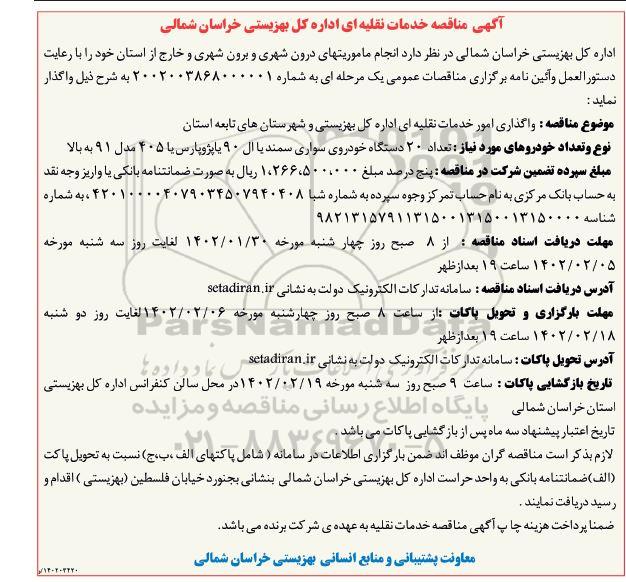 آگهی مناقصه خدمات نقلیه ای اداره کل بهزیستی خراسان شمالی
اداره کل بهزیستی خراسان شمالی در نظر دارد انجام ماموریتهای درون شهری و برون شهری و خارج از استان خود را با رعایت
دستورالعمل وآئین نامه برگزاری مناقصات عمومی یک مرحله ای به شماره ۲۰۰۲۰۰۳۸۶۸۰۰۰۰۰۱ به شرح ذیل واگذار
نماید :
موضوع مناقصه : واگذاری امور خدمات نقلیه ای اداره کل بهزیستی و شهرستان های تابعه استان
نوع وتعداد خودروهای مورد نیاز : تعداد ۲۰ دستگاه خودروی سواری سمند یا ال ۹۰ یا پژوپارس یا ۴۰۵ مدل ۹۱ به بالا
مبلغ سپرده تضمین شرکت در مناقصه : پنج درصد مبلغ ۱،۲۶۶،۵۰۰،۰۰۰ ریال به صورت ضمانتنامه بانکی یا واریز وجه نقد
به حساب بانک مرکزی به نام حساب تمرکز وجوه سپرده به شماره شبا ۴۲۰۱۰۰۰۰۴۰۷۹۰۳۴۵۰۷۹۴۰۴۰۸ ، به شماره
شناسه ۹۸۲۱۳۱۵۷۹۱۱۳۱۵۰۰۱۳۱۵۰۰۱۳۱۵۰۰۰۰
مهلت دریافت اسناد مناقصه : از ۸ صبح روز چهار شنبه مورخه ۱۴۰۲/۰۱/۳۰ لغایت روز سه شنبه مورخه
۱۴۰۲/۰۲/۰۵ ساعت ۱۹ بعدازظهر
آدرس دریافت اسناد مناقصه : سامانه تدارکات الکترونیک دولت به نشانی setadiran.ir
مهلت بارگزاری و تحویل پاکات :از ساعت ۸ صبح روز چهارشنبه مورخه ۱۴۰۲/۰۲/۰۶لغایت روز دو شنبه
۱۴۰۲/۰۲/۱۸ ساعت ۱۹ بعدازظهر
آدرس تحویل پاکات : سامانه تدارکات الکترونیک دولت به نشانی setadiran.ir
تاریخ بازگشایی پاکات : ساعت ۹ صبح روز سه شنبه مورخه ۱۴۰۲/۰۲/۱۹در محل سالن کنفرانس اداره کل بهزیستی
استان خراسان شمالی
تاریخ اعتبار پیشنهاد سه ماه پس از بازگشایی پاکات می باشد
لازم بذکر است مناقصه گران موظف اند ضمن بارگزاری اطلاعات در سامانه ( شامل پاکتهای الف ،ب،ج) نسبت به تحویل پاکت
(الف)ضمانتنامه بانکی به واحد حراست اداره کل بهزیستی خراسان شمالی بنشانی بجنورد خیابان فلسطین (بهزیستی ) اقدام و
رسید دریافت نمایند .
ضمنا پرداخت هزینه چاپ آگهی مناقصه خدمات نقلیه به عهده ی شرکت برنده می باشد.
معاونت پشتیبانی و منابع انسانی بهزیستی خراسان شمالی
۱۴۰۲۰۳۲۲۰/و
ParsNamadData
پایگاه اطلاع رسانی مناقصه و مزایده
۰۲۱-۸۸۳۴۹۶۷۰-۵